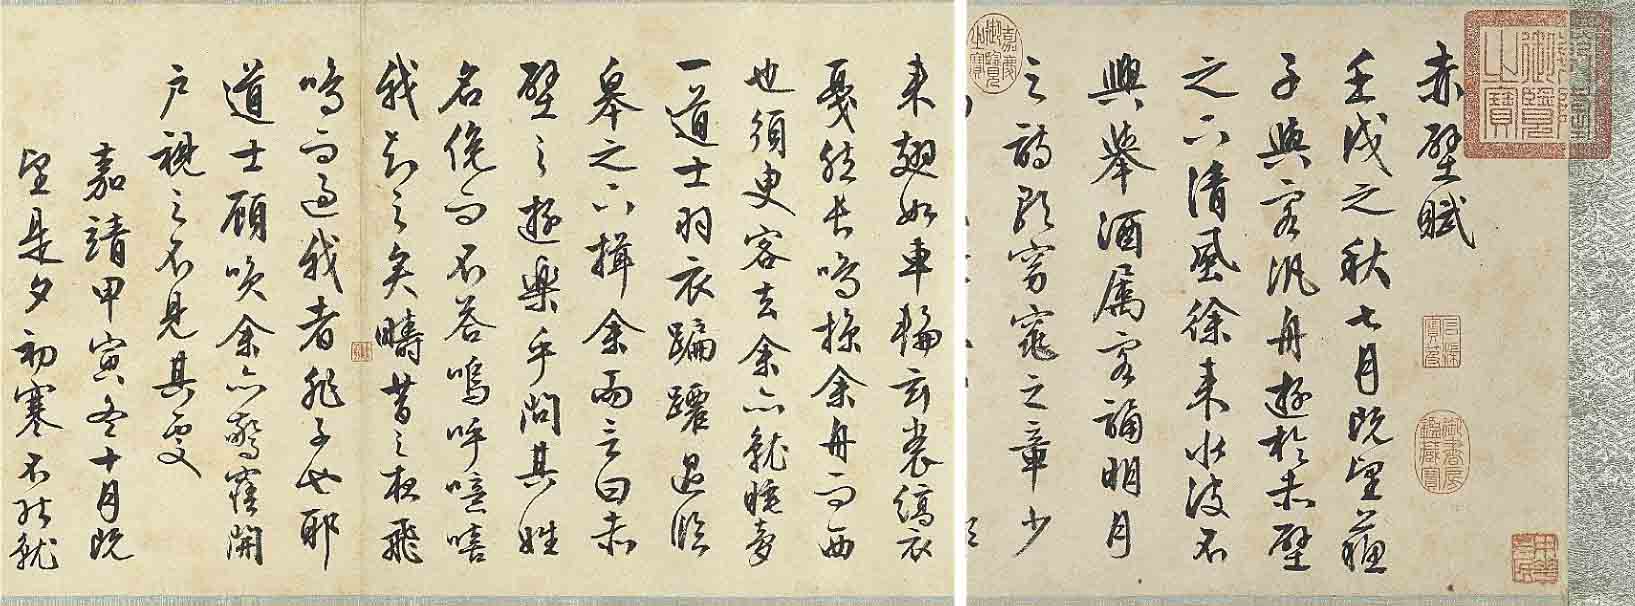 赤壁賦
壬戌之秋七月既望蘇
子與客汎舟遊於赤壁
之下清風徐來水波不
興舉酒屬客誦明月
之詩歌窈窕之章少
來翅如車輪玄裳縞衣
戛然長鳴掠余舟而西
也須臾客去余亦就睡夢
一道士羽衣蹁躚過臨
皋之下揖余而言曰赤
壁之遊樂乎問其姓
名俛而不答嗚呼噫嘻
我知之矣疇昔之夜飛
鳴而過我者非子也耶
道士顧笑余亦驚寤開
戶視之不見其處
嘉靖甲寅冬十月既
望是夕初寒不能就
嘉慶御覽之寶
御書房鑑藏寶